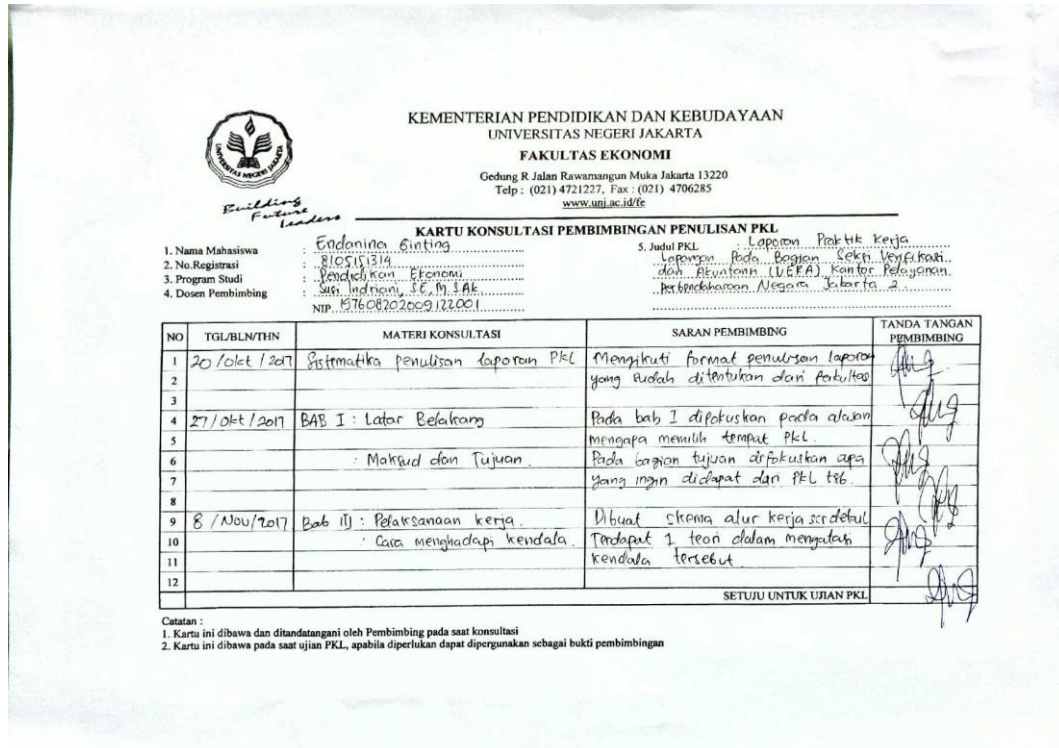 KEMENTERIAN PENDIDIKAN DAN KEBUDAYAAN
UNIVERSITAS NEGERI JAKARTA
FAKULTAS EKONOMI
Gedung R Jalan Rawamangun Muka Jakarta 13220
Telp : (021) 4721227, Fax : (021) 4706285
www.unj.ac.id/fe
UNIVERSITAS NEGERI JAKARTA
Building
Future
Leaders
KARTU KONSULTASI PEMBIMBINGAN PENULISAN PKL
1. Nama Mahasiswa : Endanina Ginting
2. No.Registrasi : 8105151314
3. Program Studi : Pendidikan Ekonomi
4. Dosen Pembimbing : Susi Indriani, SE, M.S.Ak
NIP 197608202009122001
5. Judul PKL : Laporan Praktik Kerja
Lapangan Pada Bagian Seksi Verifikasi
dan Akuntansi (VERA) Kantor Pelayanan
Perbendaharaan Negara Jakarta 2.
NO TGL/BLN/THN MATERI KONSULTASI SARAN PEMBIMBING TANDA TANGAN PEMBIMBING
1 20/Okt/2017 Sistmatika penulisan laporan PKL Mengikuti format penulisan laporan
2 yang sudah ditentukan dari fakultas
3
4 27/Okt/2017 BAB I : Latar Belakang Pada bab I difokuskan pada alasan
5 mengapa memilih tempat PKL.
6 : Maksud dan Tujuan. Pada bagian tujuan difokuskan apa
7 yang ingin didapat dari PKL tsb.
8
9 8/Nov/2017 Bab III : Pelaksanaan kerja. Dibuat skema alur kerja scr detail
10 : Cara menghadapi kendala. Terdapat 1 teori dalam mengatasi
11 kendala tersebut
12
SETUJU UNTUK UJIAN PKL
Catatan :
1. Kartu ini dibawa dan ditandatangani oleh Pembimbing pada saat konsultasi
2. Kartu ini dibawa pada saat ujian PKL, apabila diperlukan dapat dipergunakan sebagai bukti pembimbingan